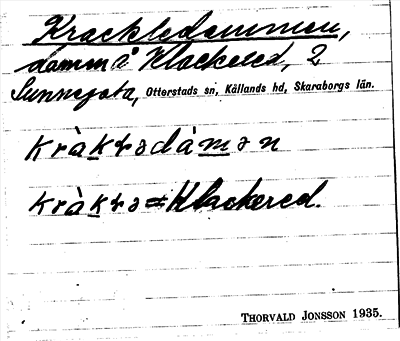 Krackledammen,
damm å Klackered, 2
Sunnegota, Otterstads sn, Kållands hd, Skaraborgs län.
kràkɫədámən
kràkɫə = Klackered.
THORVALD JONSSON 1935.